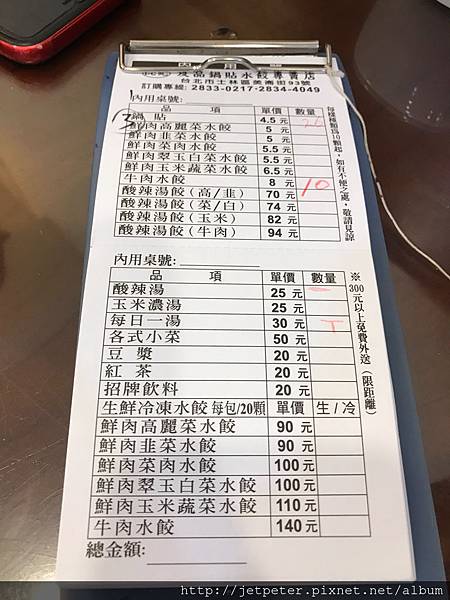 內用單
及品鍋貼水餃專賣店
台北市士林區美崙街93號
訂購專線: 2833-0217·2834-4049
內用桌號:
品 項 單價 數量
鍋 貼 4.5 元 20
鮮肉高麗菜水餃 5 元
鮮肉韭菜水餃 5 元
鮮肉菜肉水餃 5.5 元
鮮肉翠玉白菜水餃 5.5 元
鮮肉玉米蔬菜水餃 6.5 元
牛肉水餃 8 元 10
酸辣湯餃(高/韭) 70 元
酸辣湯餃(菜/白) 74 元
酸辣湯餃(玉米) 82 元
酸辣湯餃(牛肉) 94 元
每樣種類為10顆起,如有不便之處,敬請見諒
內用桌號:
品 項 單價 數量
酸辣湯 25 元 一
玉米濃湯 25 元
每日一湯 30 元 T
各式小菜 50 元
豆 漿 20 元
紅 茶 20 元
招牌飲料 20 元
生鮮冷凍水餃 每包/20顆 單價 生/冷
鮮肉高麗菜水餃 90 元
鮮肉韭菜水餃 90 元
鮮肉菜肉水餃 100 元
鮮肉翠玉白菜水餃 100 元
鮮肉玉米蔬菜水餃 110 元
牛肉水餃 140 元
總金額:
※300元以上免費外送(限距離)
http://jetpeter.pixnet.net/album